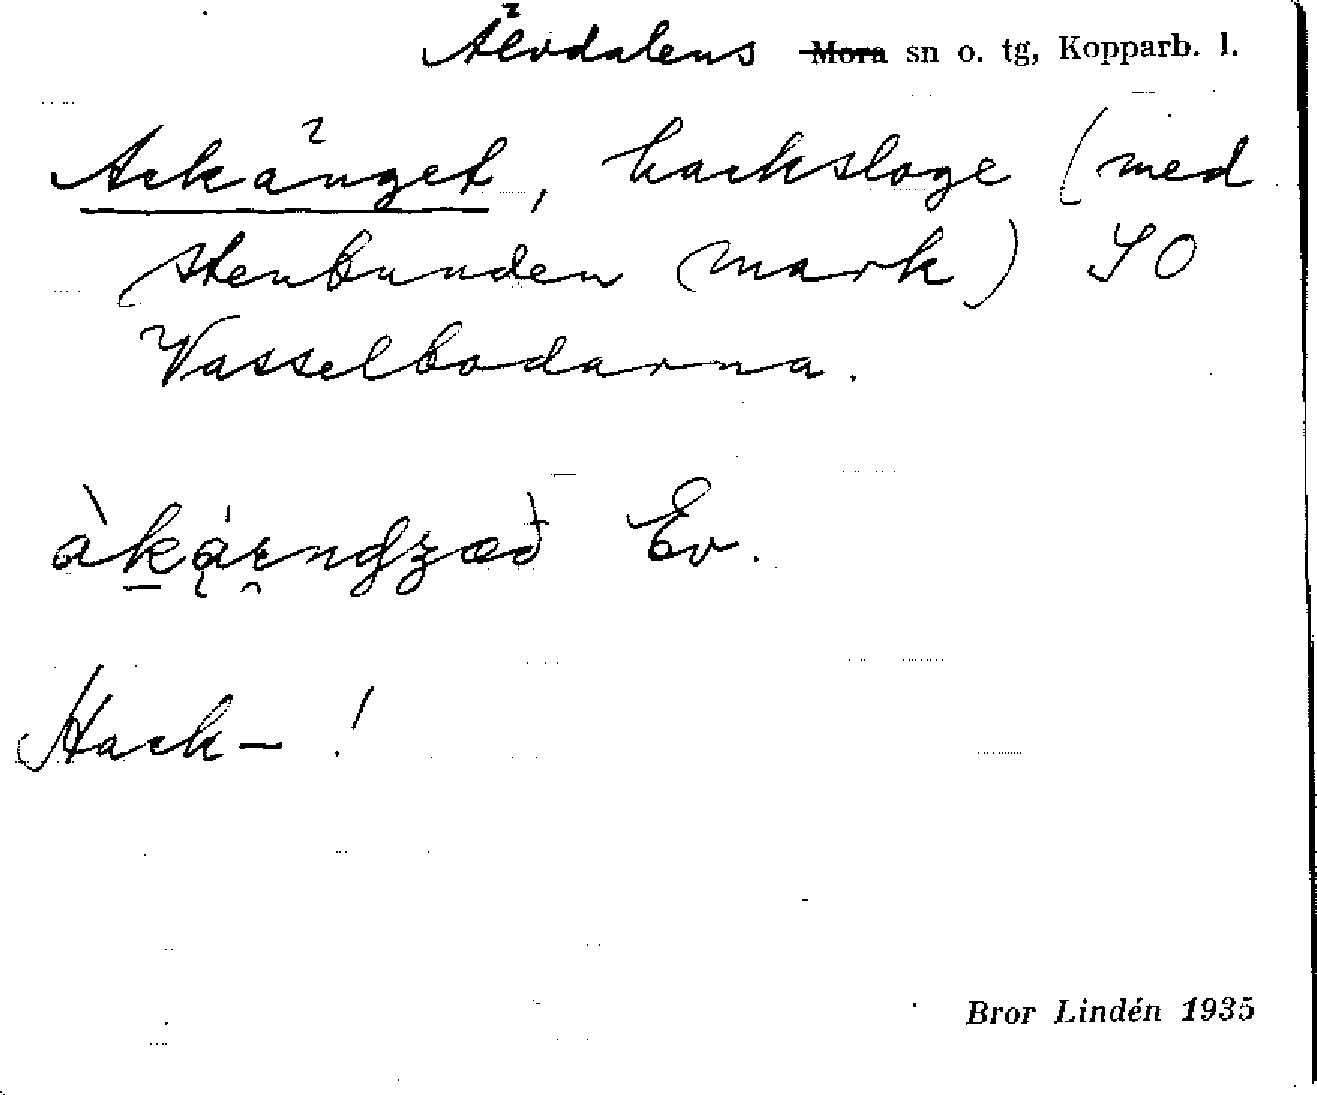 Älvdalens Mora sn o. tg, Kopparb. l.
Ackänget, hacksloge (med
stenbunden mark) SO
Vasselbodarna.
Ev.
Hack- !
Bror Lindén 1935